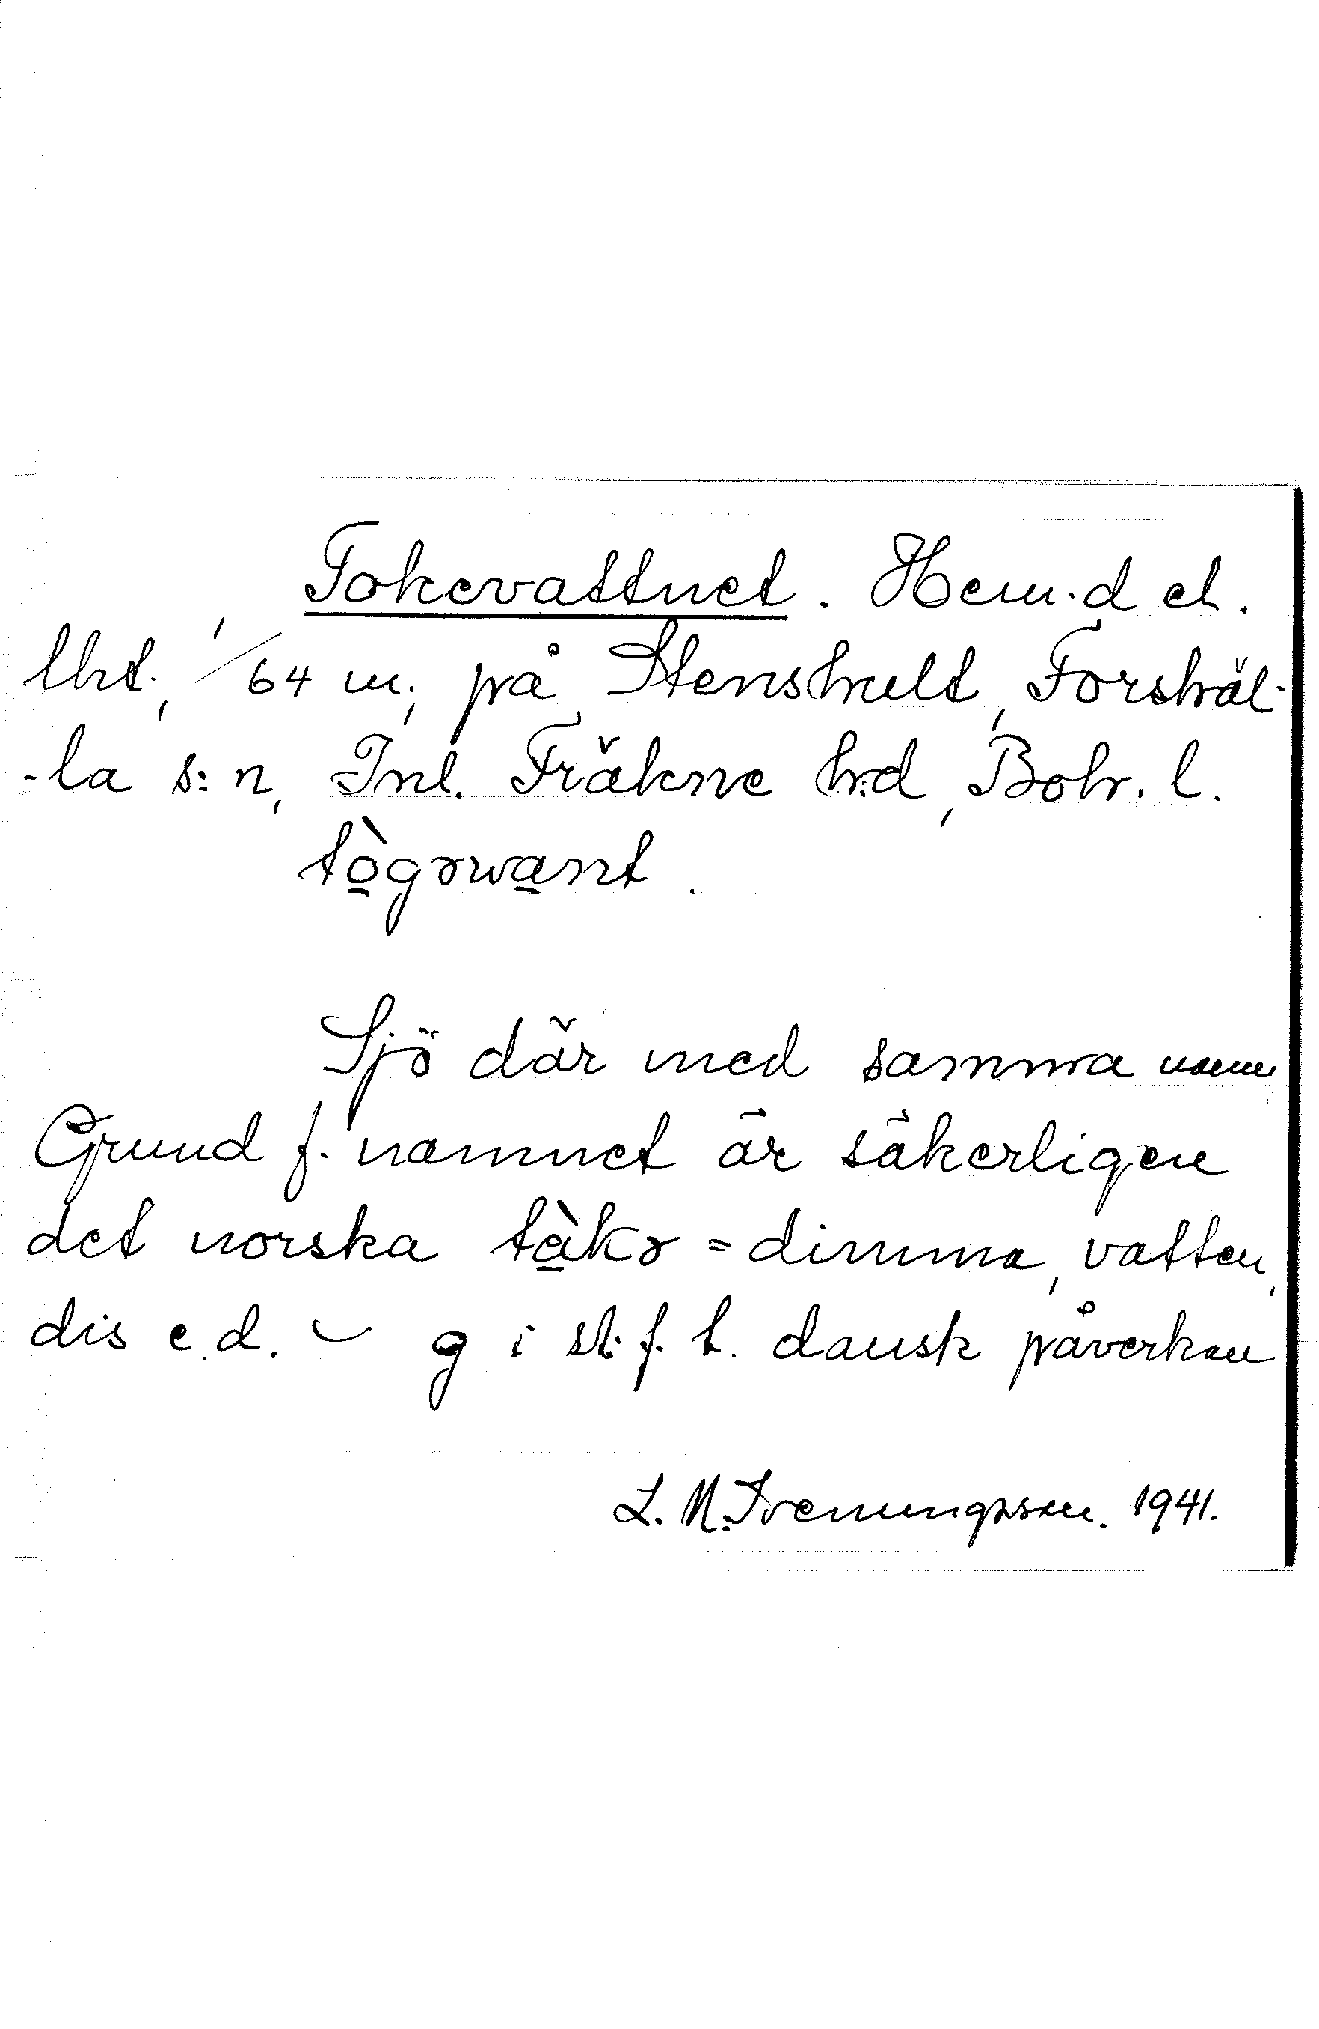 Tokevattnet. Hem.d el.
lht, 1/64 m, på Stenshult, Forshäl-
-la s:n, Inl. Fräkne hd, Boh. l.
tògəwant.
Sjö där med samma namn
Grund f. namnet är säkerligen
det norska tåkə = dimma, vatten,
dis e.d. – g i st. f. k. dansk påverkan
L. N. Svenungsson. 1941.